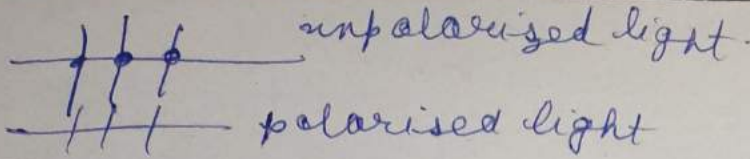 unpolarised light.
polarised light